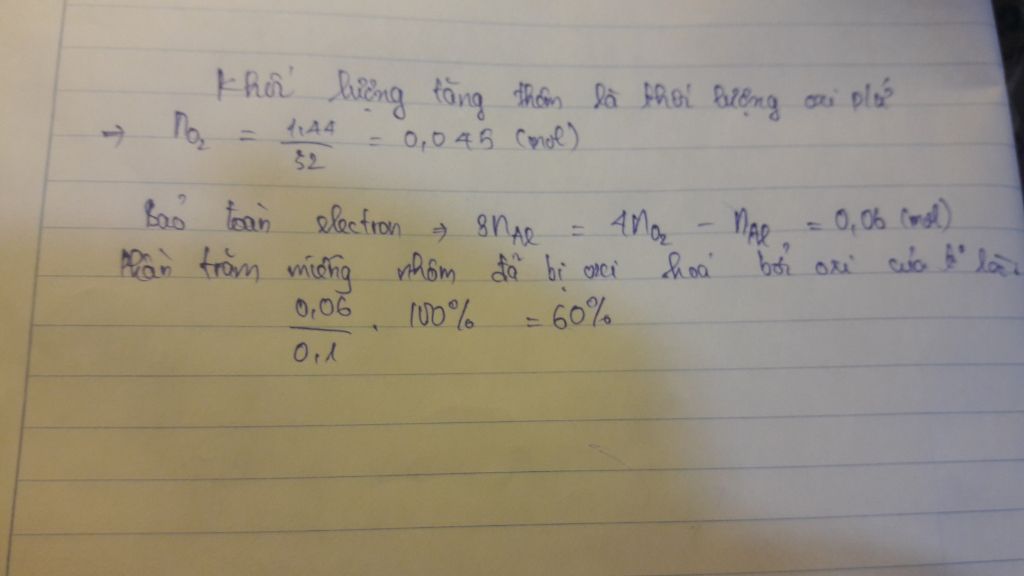 Khối lượng tăng thêm là khối lượng oxi p/ứ
→ n_{O_2} = \frac{1,44}{32} = 0,045 (mol)
Bảo toàn electron → 3n_{Al} = 4n_{O_2} - n_{Al} = 0,06 (mol)
Phần trăm miếng nhôm đã bị oxi hoá bởi oxi của k²
\frac{0,06}{0,1} . 100% = 60%